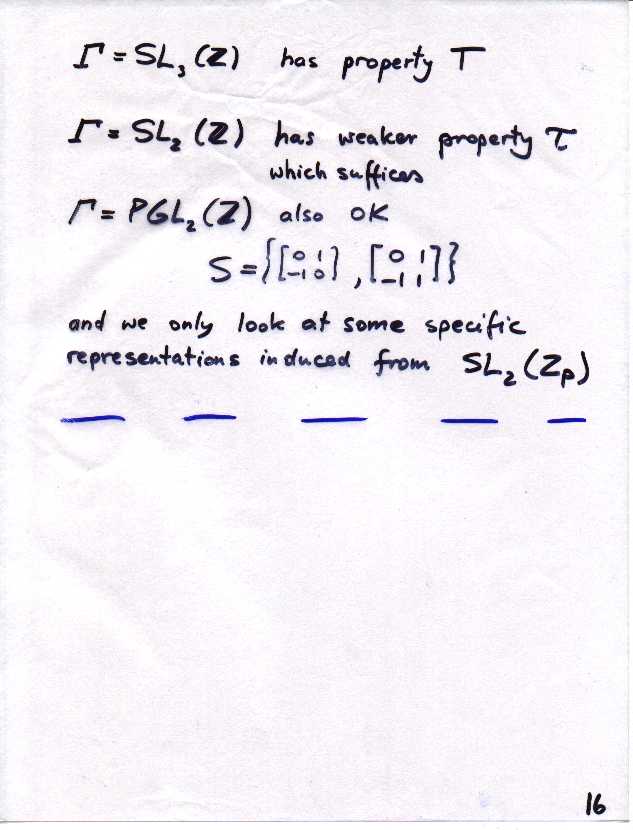 Γ = SL₃(Z) has property T
Γ = SL₂(Z) has weaker property τ
which suffices
Γ = PGL₂(Z) also OK
S = {[0 1 -1 0], [0 1 -1 1]}
and we only look at some specific
representations induced from SL₂(Zp)
16